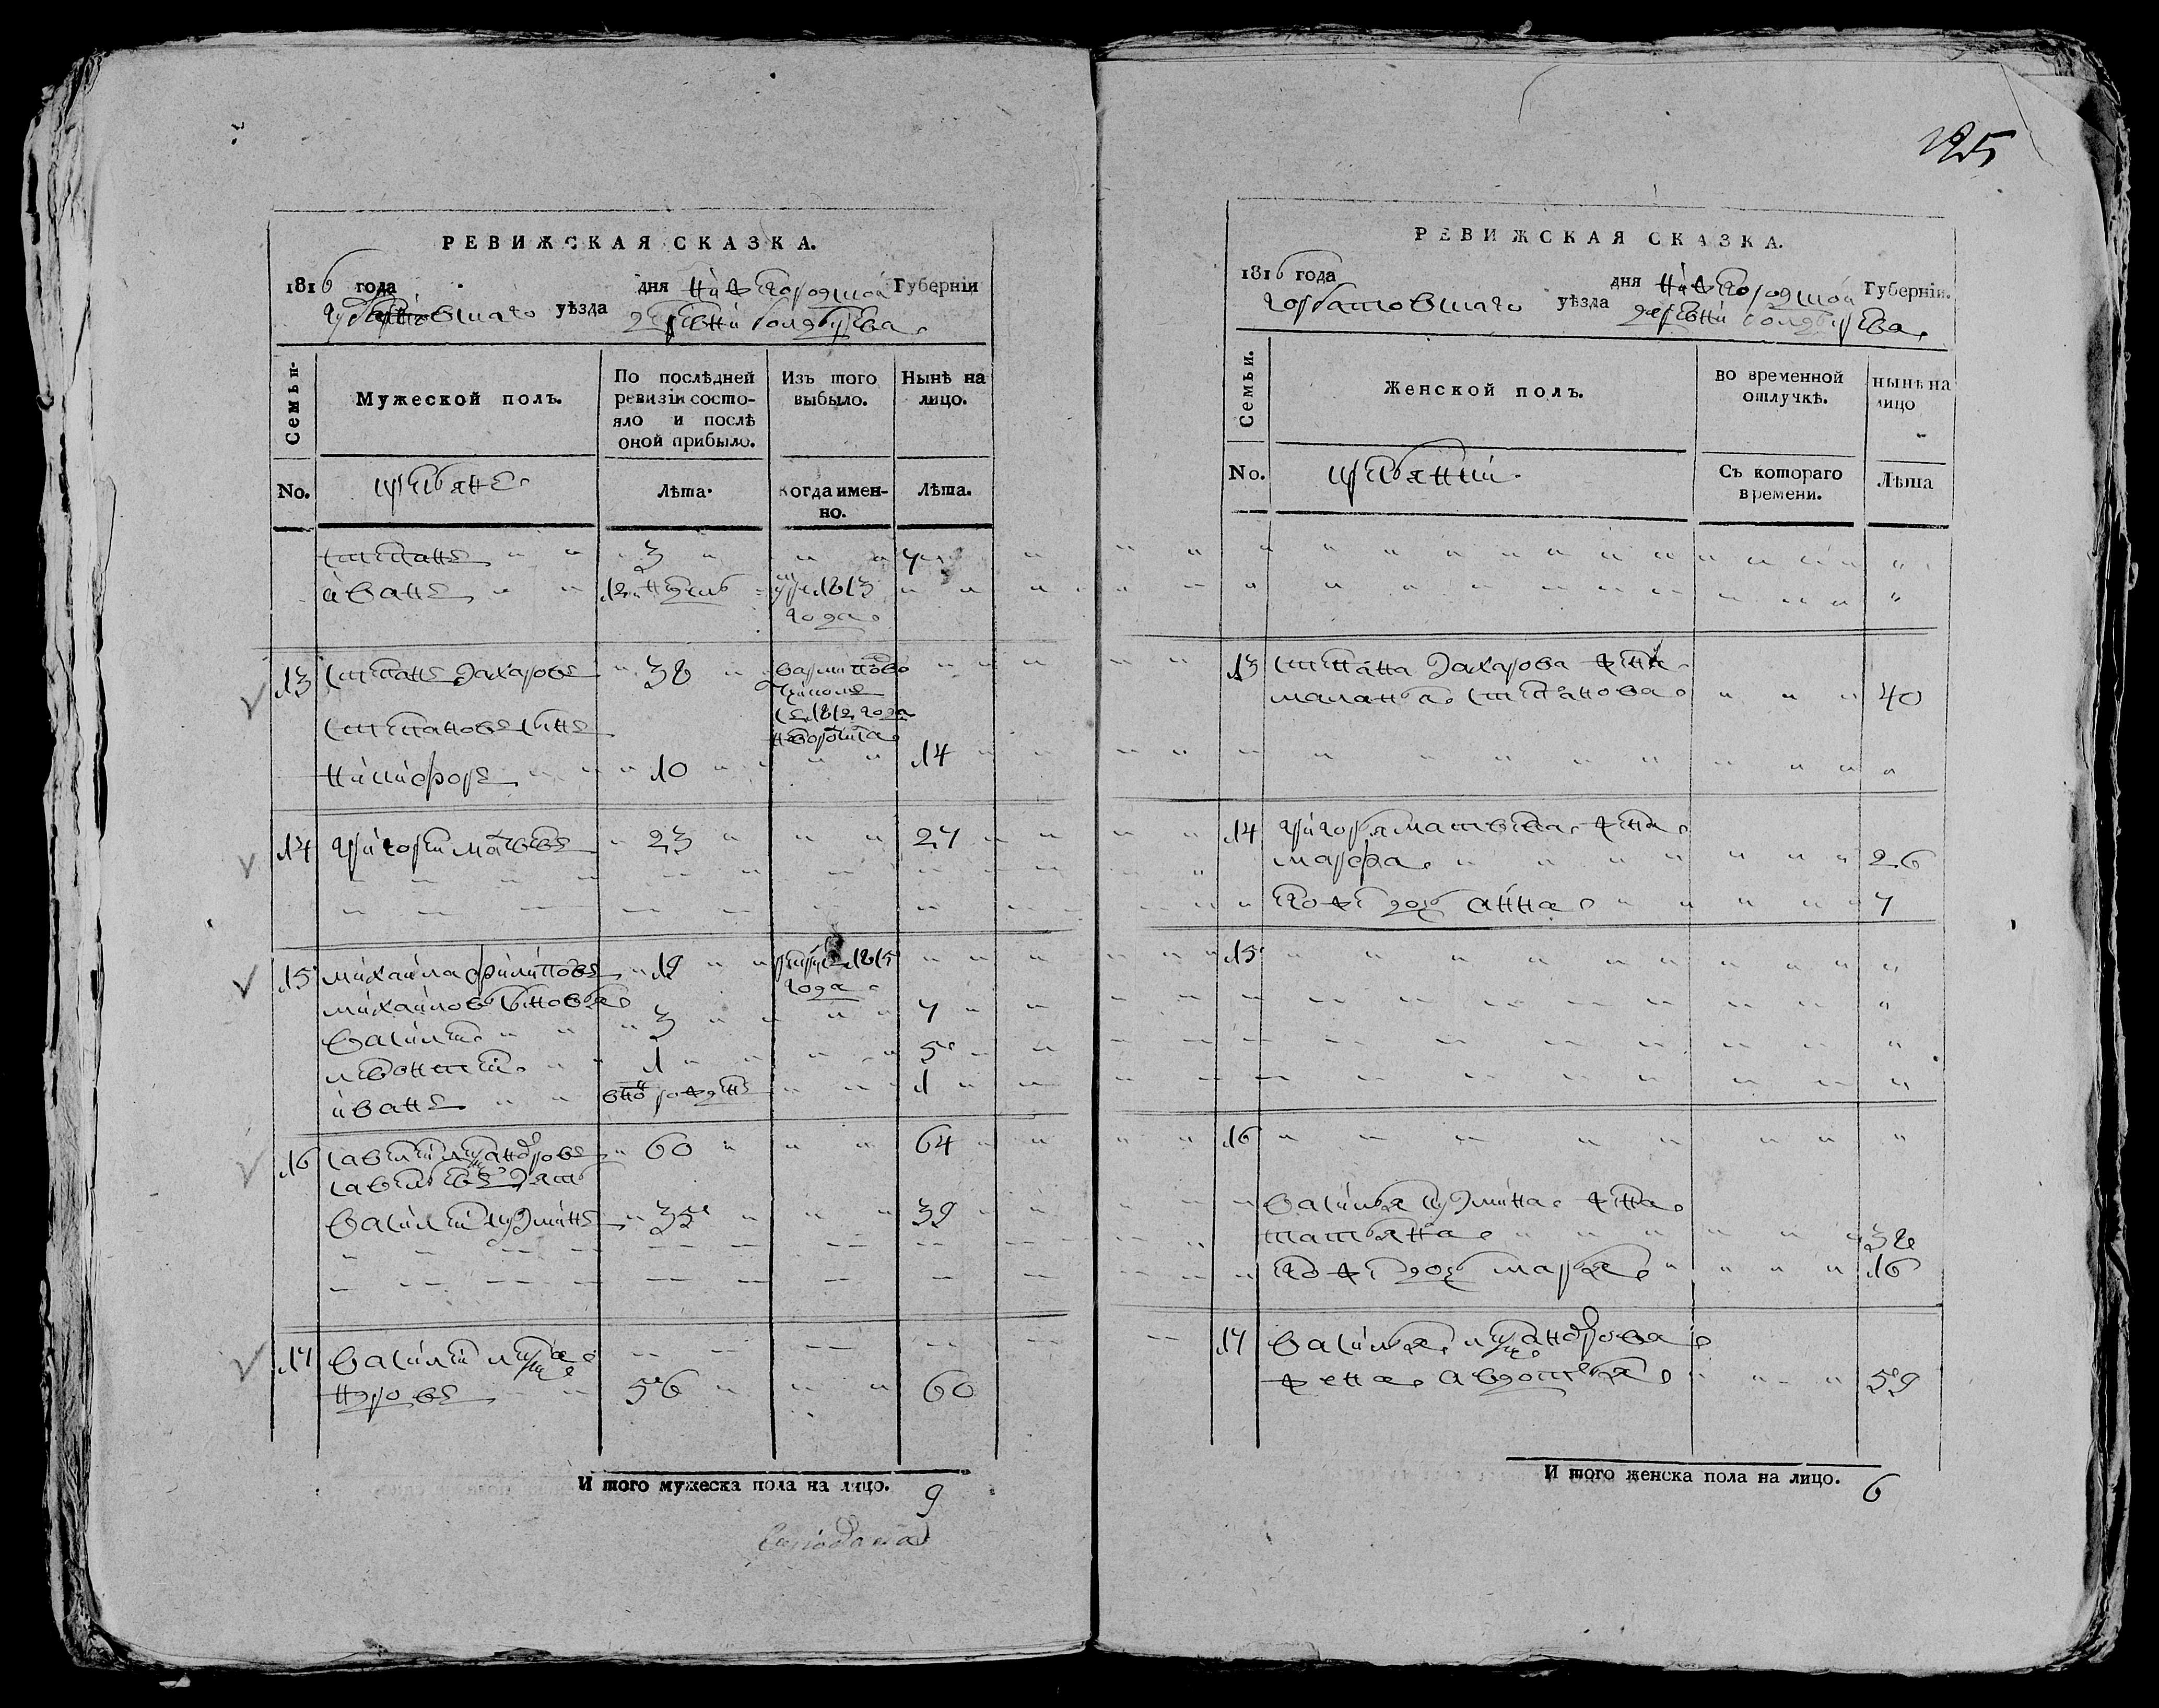 125
РЕВИЖСКАЯ СКАЗКА.
1816 года дня нижегородской Губерніи
горбатовскаго уѣзда деревни
Семьи.
Мужеской полъ.
По послѣдней ревизіи состояло и послѣ оной прибыло.
Изъ того выбыло.
Нынѣ на лицо.
No.
крестьяне
Лѣта.
когда именно.
Лѣта.
степанъ 3 7
иванъ 12 недель 1813
года
13 степанъ захаровъ 38
степановъ сынъ
с 1812 года
никифоръ 10 14
14 григореи матвеевъ 23 27
15 михаила филиповъ 19 1815
года
михаиловы сыновья
василеи 3 7
левонтеи 1 5
иванъ вновь рожденъ 1
16 савелеи 60 64
савельевъ зять
василеи кузминъ 35 39
17 василеи
56 60
И того мужеска пола на лицо. 9
РЕВИЖСКАЯ СКАЗКА.
1816 года дня нижегородской Губерніи.
горбатовскаго уѣзда деревни
Семьи.
Женской полъ.
во временной отлучкѣ.
нынѣ на лицо
No.
крестьянки
Съ котораго времени.
Лѣта
13 степана захарова жена
маланья степанова 40
14 григорья матвеева жена
марфа 26
его же дочь анна 7
15
16
василья кузмина жена
татьяна 38
его же дочь марья 16
17 василья
жена авдотья 59
И того женска пола на лицо. 6